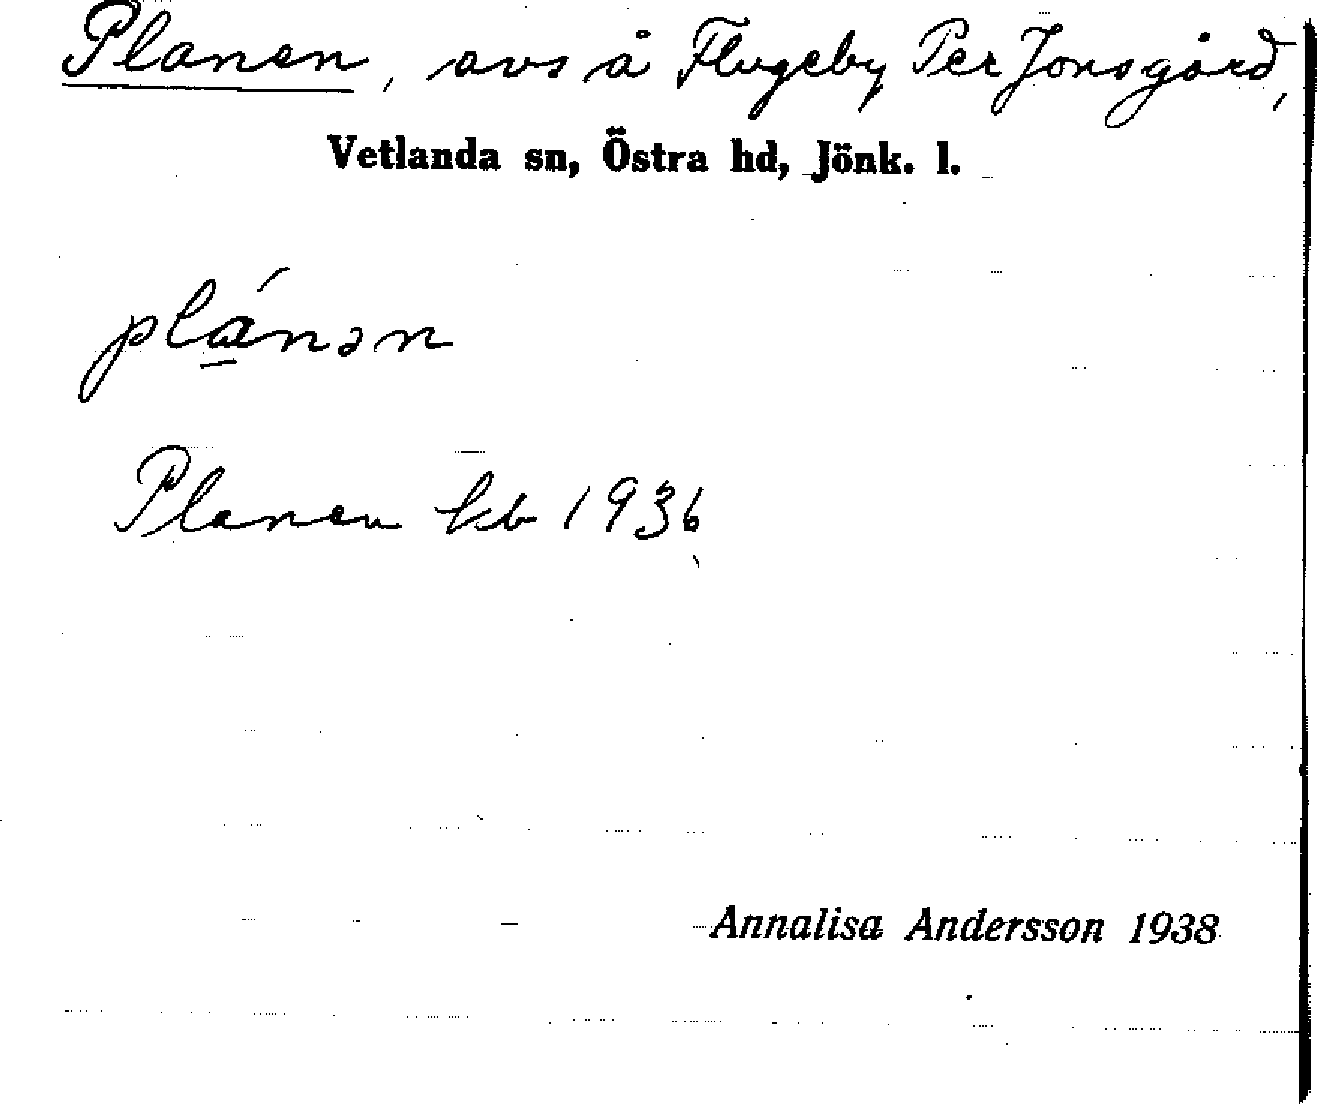 Planen, avs å Flugeby Per Jonsgård,
Vetlanda sn, Östra hd, Jönk. l.
plánən
Planen kb 1936
Annalisa Andersson 1938